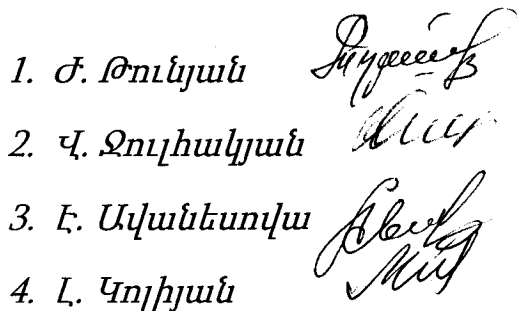 1. Ժ. Թունյան
2. Վ. Ջուլհակյան
3. Է. Ավանեսովա
4. Լ. Կոլիյան